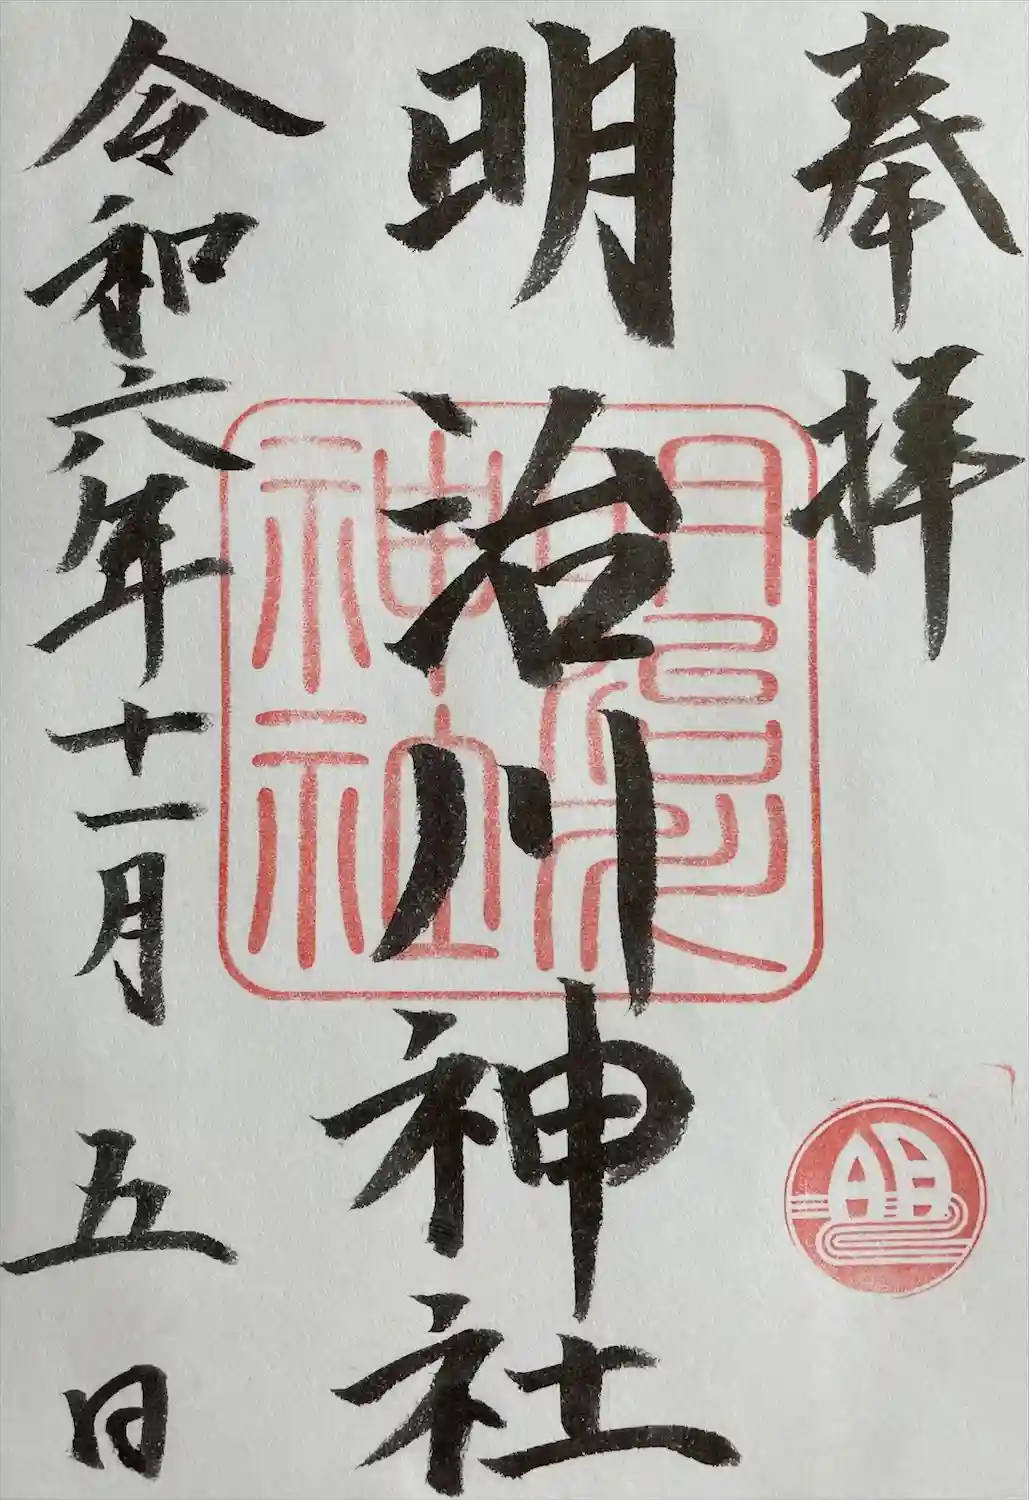 奉拝
明治川神社
令和六年十一月五日
明治川神社
明